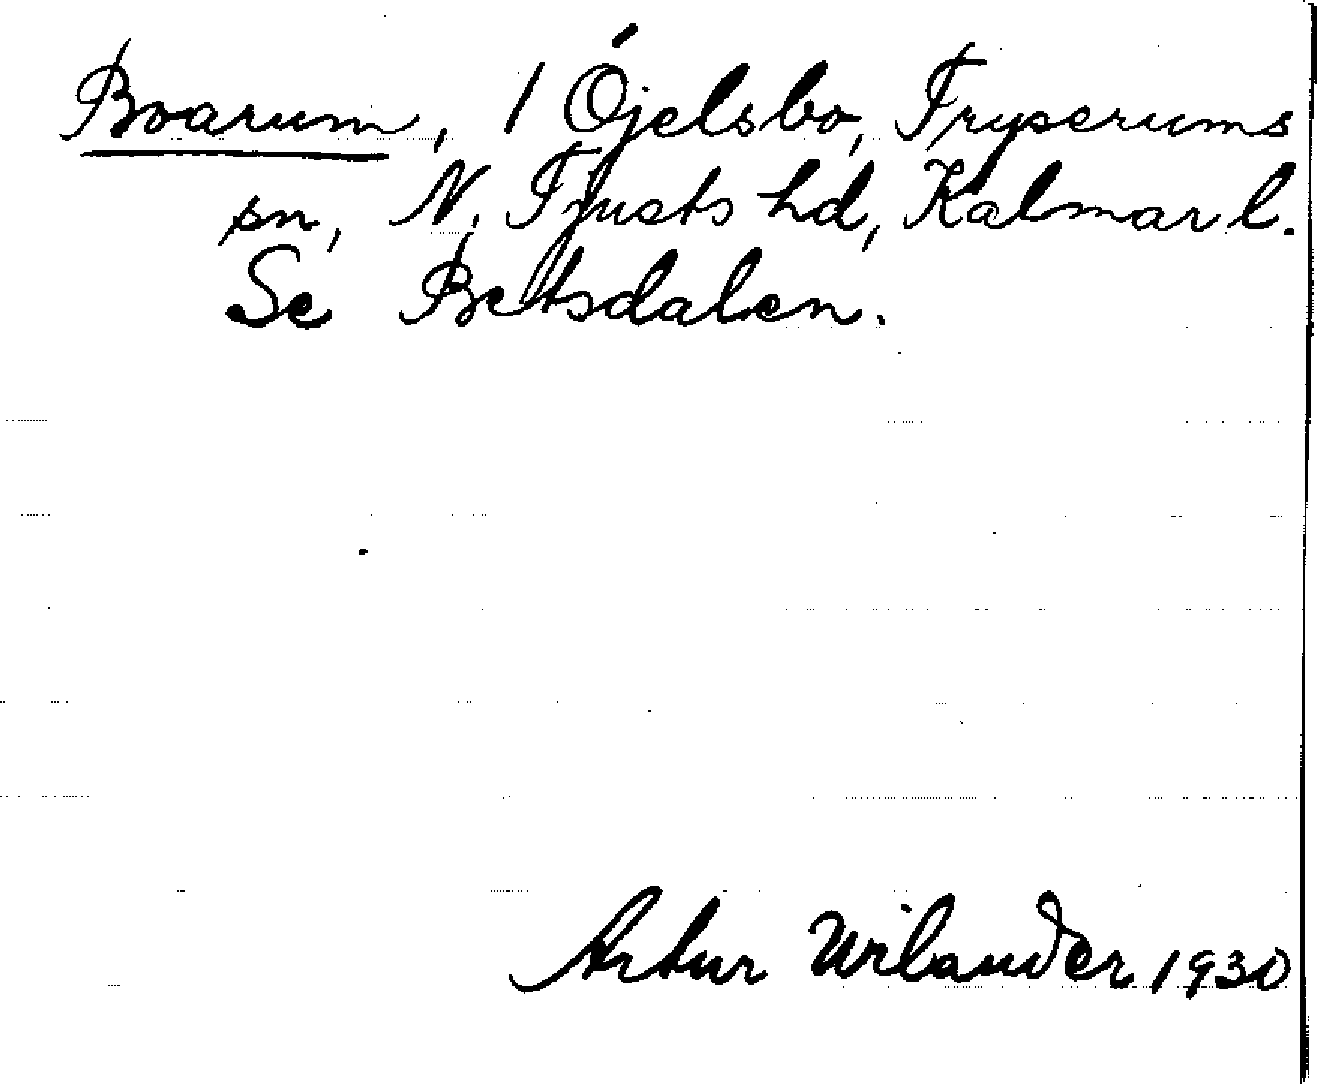 Boarum, 1 Öjelsbo, Tryserums
sn, N. Tjusts hd, Kalmar l.
Se Betsdalen.
Artur Wilander 1930